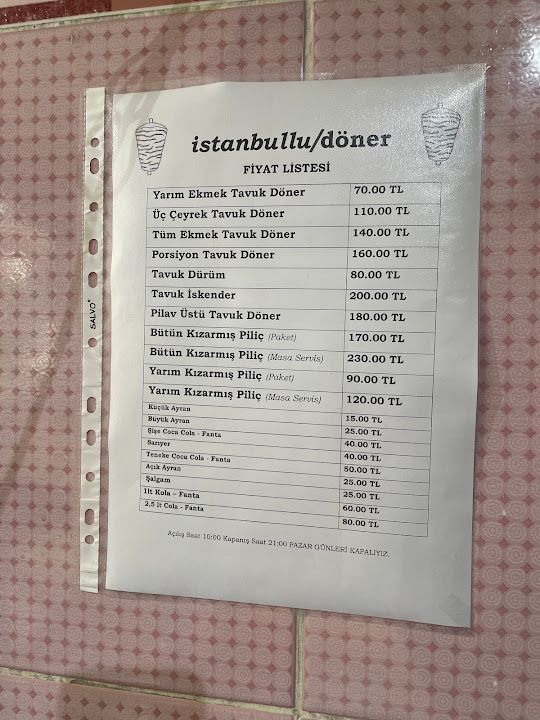 istanbullu/döner
FİYAT LİSTESİ
Yarım Ekmek Tavuk Döner 70.00 TL
Üç Çeyrek Tavuk Döner 110.00 TL
Tüm Ekmek Tavuk Döner 140.00 TL
Porsiyon Tavuk Döner 160.00 TL
Tavuk Dürüm 80.00 TL
Tavuk İskender 200.00 TL
Pilav Üstü Tavuk Döner 180.00 TL
Bütün Kızarmış Piliç (Paket) 170.00 TL
Bütün Kızarmış Piliç (Masa Servis) 230.00 TL
Yarım Kızarmış Piliç (Paket) 90.00 TL
Yarım Kızarmış Piliç (Masa Servis) 120.00 TL
Küçük Ayran 15.00 TL
Büyük Ayran 25.00 TL
Şişe Coca Cola - Fanta 40.00 TL
Sarıyer 40.00 TL
Teneke Coca Cola - Fanta 50.00 TL
Açık Ayran 25.00 TL
Şalgam 25.00 TL
1lt Kola – Fanta 60.00 TL
2,5 lt Cola - Fanta 80.00 TL
Açılış Saat 10:00 Kapanış Saat 21:00 PAZAR GÜNLERİ KAPALIYIZ.
SALVO®